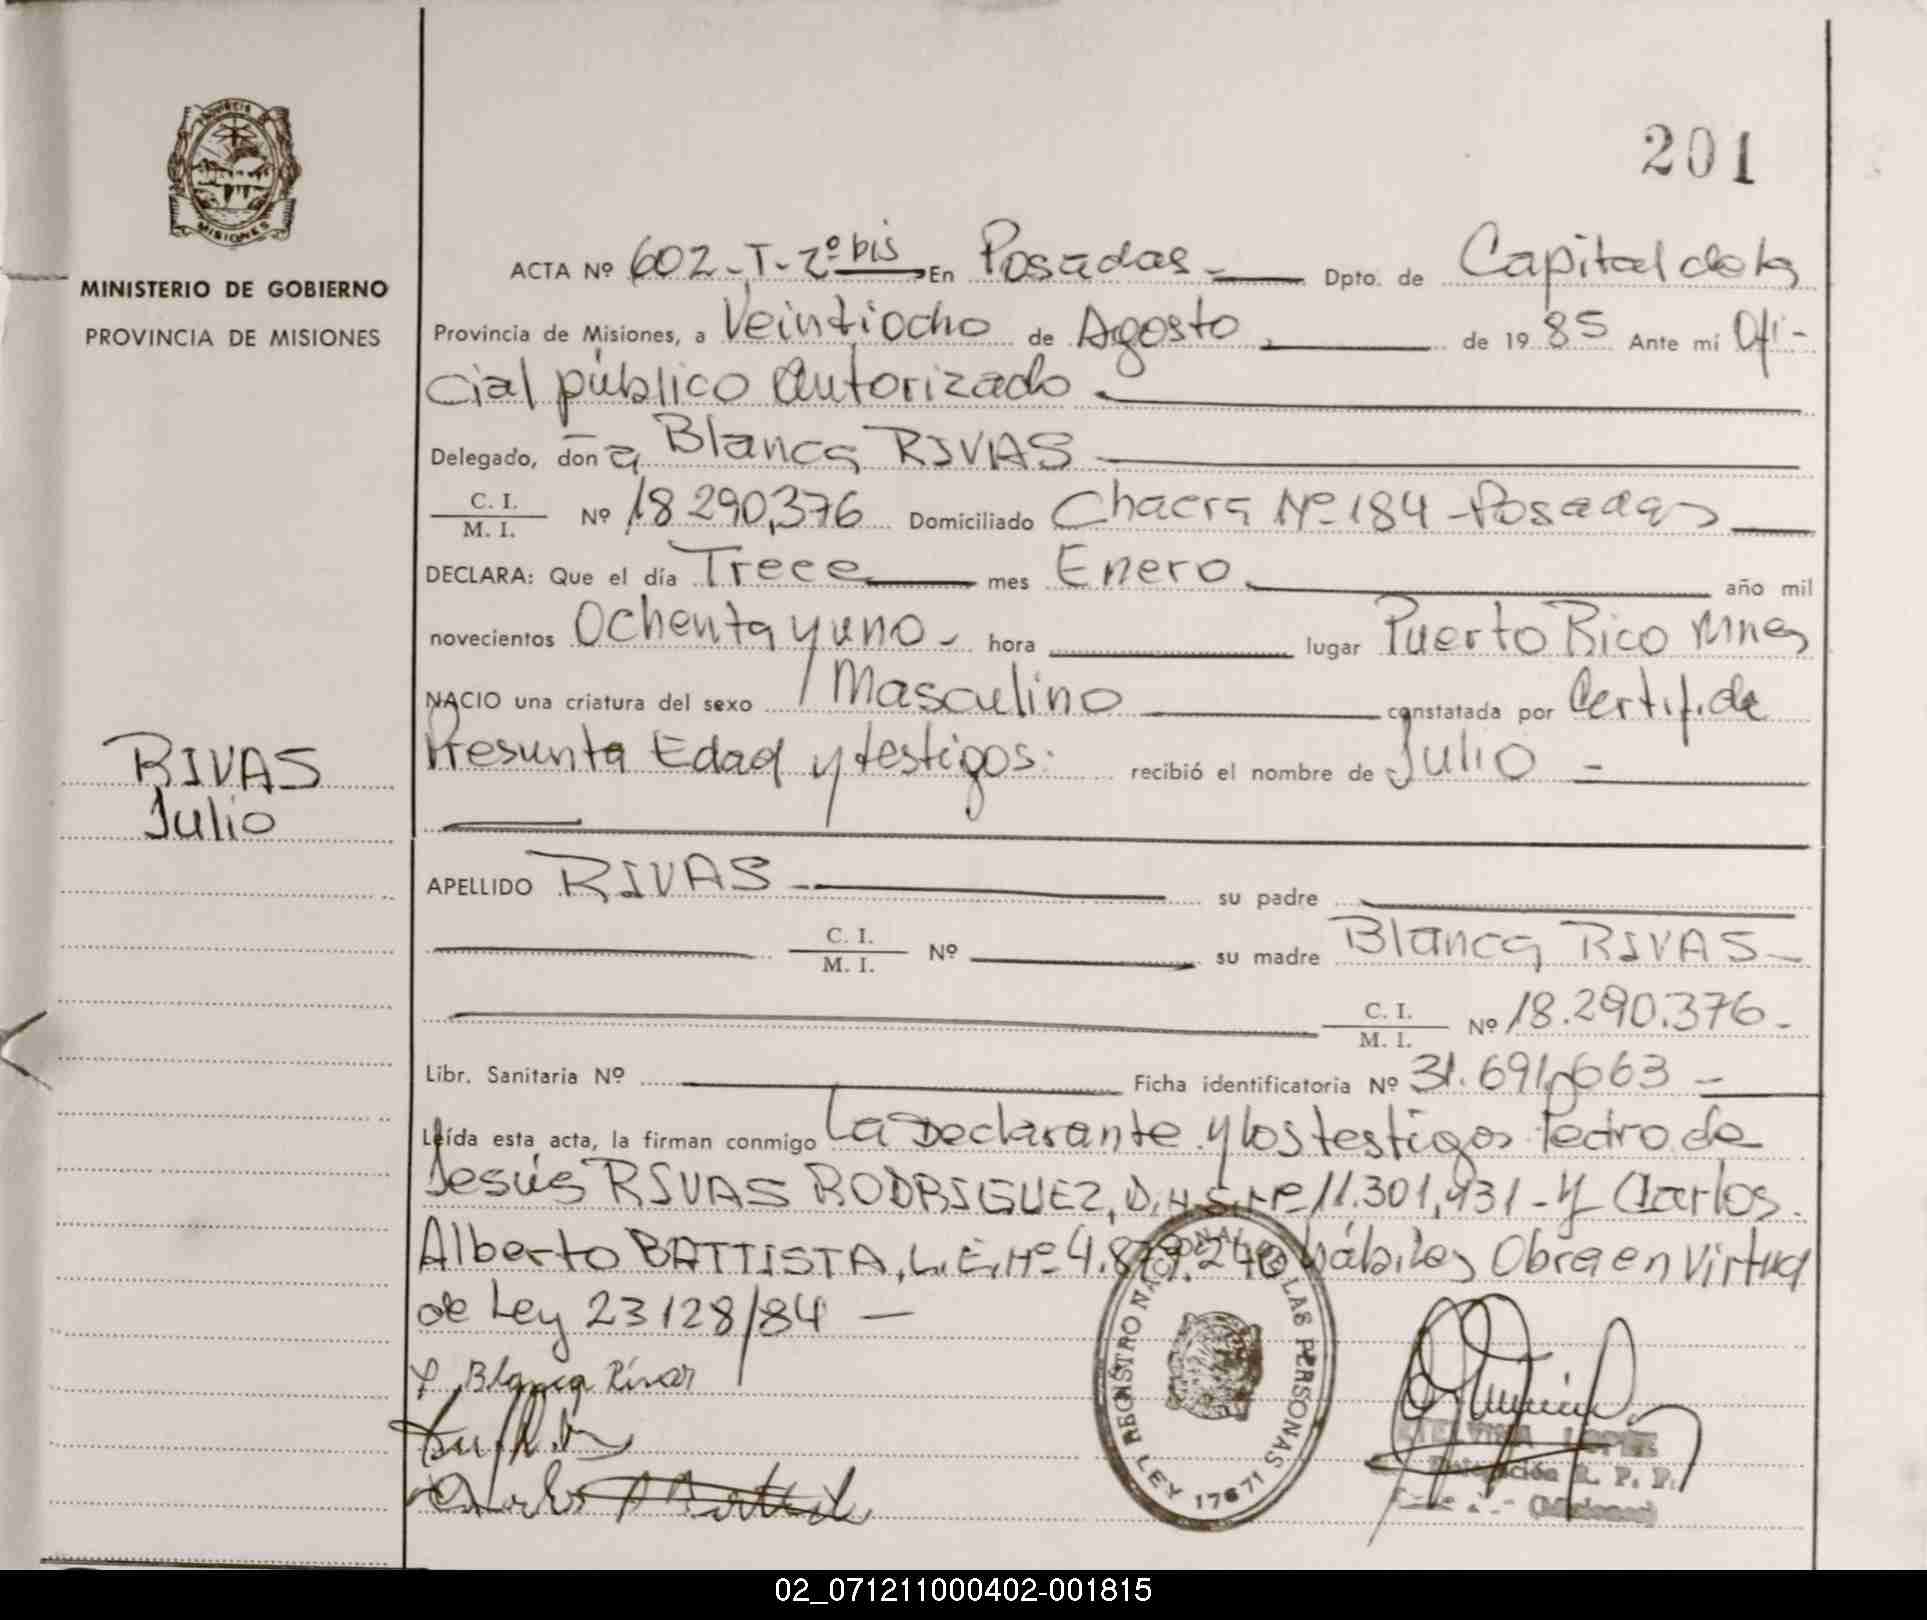 201
PROVINCIA
MISIONES
MINISTERIO DE GOBIERNO
PROVINCIA DE MISIONES
ACTA Nº 602-T-2º bis En Posadas Dpto. de Capital de la
Provincia de Misiones, a Veintiocho de Agosto de 1985 Ante mí Ofi-
cial público Autorizado
Delegado, doña Blanca RIVAS
C. I. / M. I. Nº 18.290.376 Domiciliado Chacra Nº 184 - Posadas
DECLARA: Que el día Trece mes Enero año mil
novecientos Ochenta y uno - hora lugar Puerto Rico Mnes
NACIO una criatura del sexo Masculino constatada por Certif. de
Presunta Edad y testigos. recibió el nombre de Julio -
RIVAS
Julio
APELLIDO RIVAS su padre
C. I. / M. I. Nº su madre Blanca RIVAS -
C. I. / M. I. Nº 18.290.376 -
Libr. Sanitaria Nº Ficha identificatoria Nº 31.691.663 -
Leída esta acta, la firman conmigo La Declarante y los testigos Pedro de
Jesús RIVAS RODRIGUEZ, D.N.I. Nº 11.301,931 - y Carlos
Alberto BATTISTA, L.E. Nº 4.879.240 hábiles Obra en Virtud
de Ley 23128/84 -
Blanca Rivas
REGISTRO NACIONAL DE LAS PERSONAS
LEY 17671
ETELVINA LOPEZ
Delegación R. P. P.
(Misiones)
02_071211000402-001815